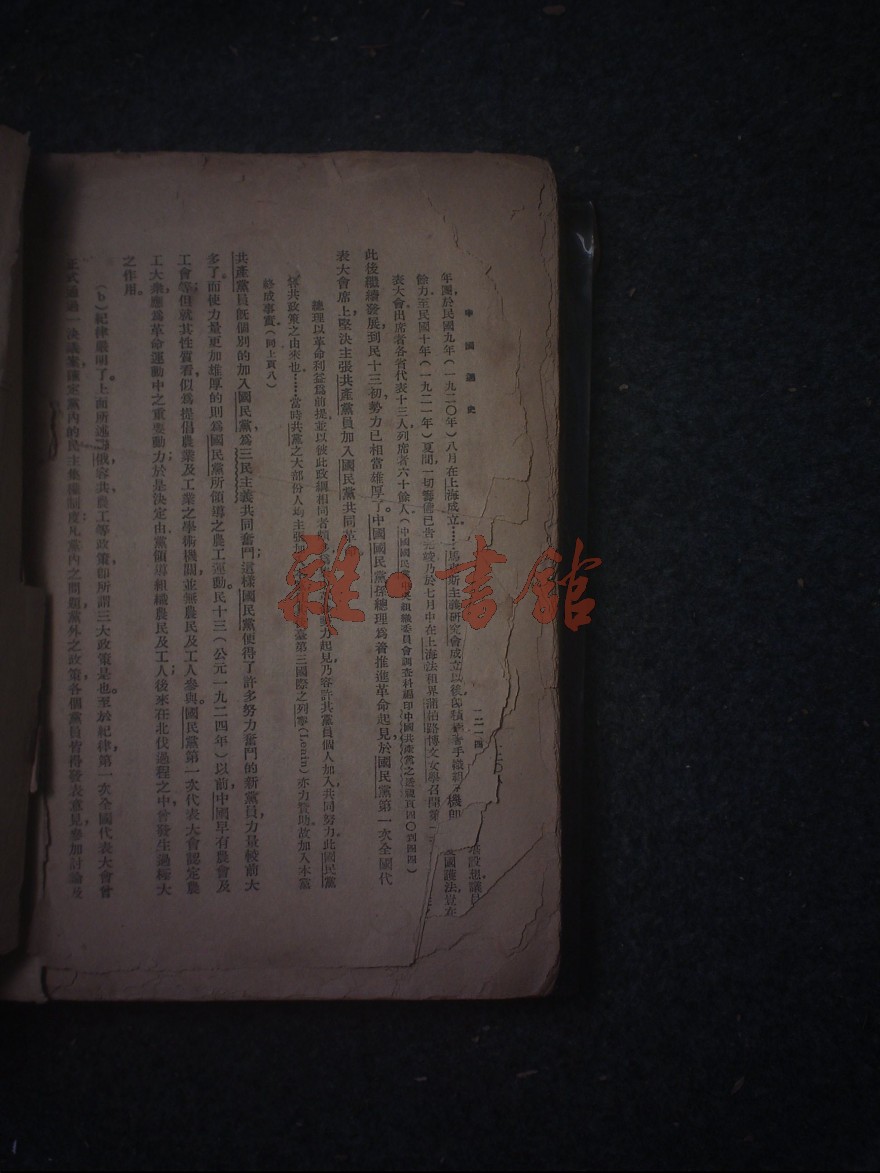 中國通史
一二一四
年團於民國九年(一九二〇年)八月在上海成立……馬克斯主義研究會成立以後即積極着手組織機
餘力至民國十年(一九二一年)夏間一切籌備已告竣乃於七月中在上海法租界蒲柏路博文女學召開第
表大會出席者各省代表十三人列席者六十餘人(中國國民黨組織委員會調查科編印中國共產黨之透視頁四〇到四四)
此後繼續發展到民十三初勢力已相當雄厚了。中國國民黨孫總理爲著推進革命起見於國民黨第一次全國代
表大會席上堅決主張共產黨員加入國民黨共同革
總理以革命利益爲前提並以彼此政綱相同者頗 力起見乃容許共黨員個人加入共同努力。此國民黨
容共政策之由來也……當時共黨之大部份人均主張加 第三國際之列寧(Lenin)亦力贊助故加入本黨
終成事實(同上頁八)
共產黨員既個別的加入國民黨,爲三民主義共同奮鬥;這樣國民黨便得了許多努力奮鬥的新黨員,力量較前大
多了。而使力量更加雄厚的則爲國民黨所領導之農工運動。民十三(公元一九二四年)以前,中國早有農會及
工會等;但就其性質看似爲提倡農業及工業之學術機關,並無農民及工人參與。國民黨第一次代表大會認定農
工大衆應爲革命運動中之重要動力;於是決定由黨領導組織農民及工人後來在北伐過程之中曾發生過極大
之作用。
(b)紀律嚴明了。上面所述聯俄容共農工等政策即所謂三大政策是也。至於紀律第一次全國代表大會曾
正式通過一決議案確定黨內的民主集權制度凡黨內之問題黨外之政策各個黨員皆得發表意見參加討論及
雜·書館